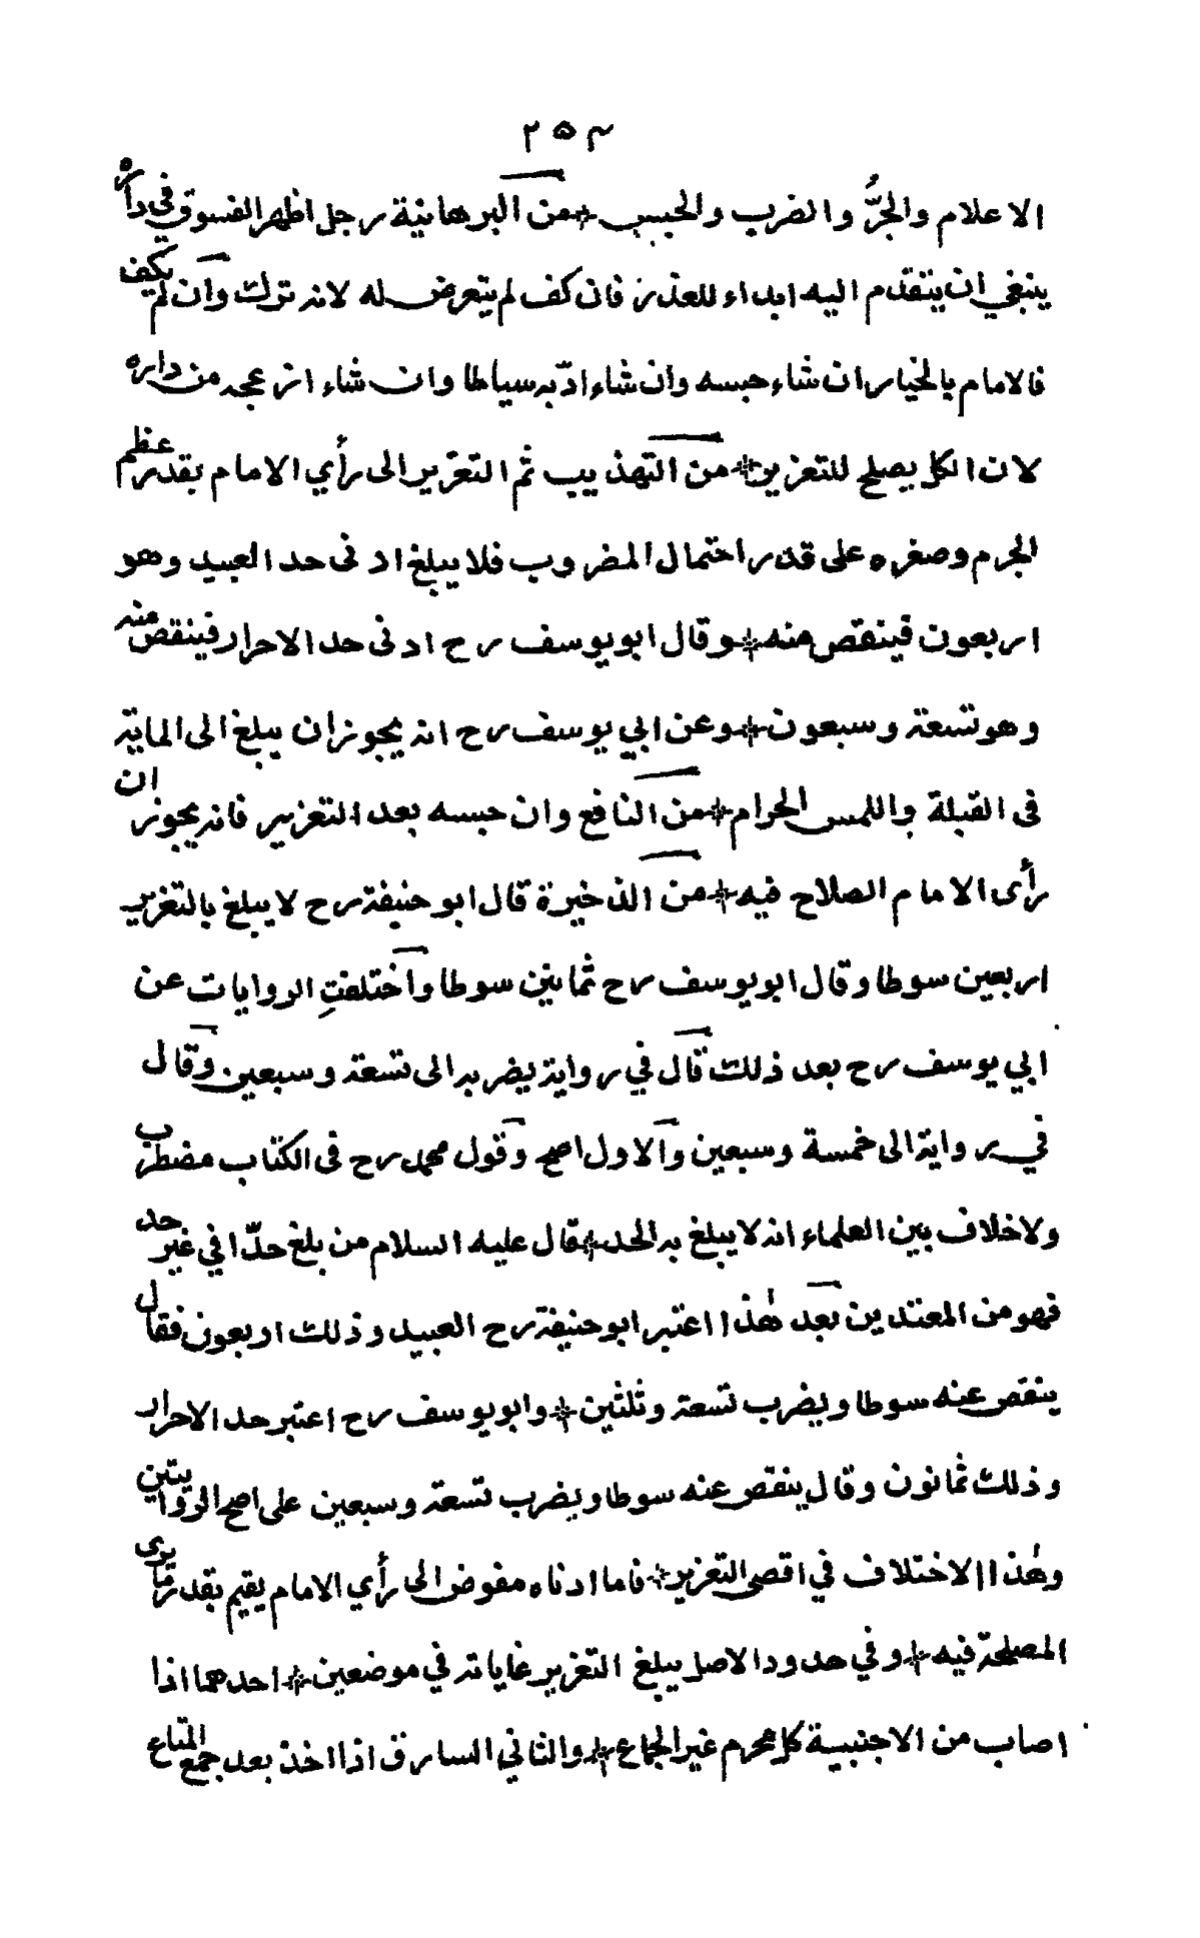 ٢٥٣
الاعلام والجرُّ والضرب والحبس * من البرهانية رجل اظهر الفسوق في داره
ينبغي ان يتقدم اليه ابداء للعذر فان كف لم يتعرض له لانه ترك وان لم يكف
فالامام بالخيار ان شاء حبسه وان شاء ادّبه سياطا وان شاء ازعجه من داره
لان الكل يصلح للتعزير * من التهذيب ثم التعزير الى رأي الامام بقدر عظم
الجرم وصغره على قدر احتمال المضروب فلا يبلغ ادنى حد العبيد وهو
اربعون فينقص منه * وقال ابو يوسف رح ادنى حد الاحرار فينقص منه
وهو تسعة وسبعون * وعن ابي يوسف رح انه يجوز ان يبلغ الى الماية
فى القبلة واللمس الحرام * من النافع وان حبسه بعد التعزير فانه يجوز ان
رأى الامام الصلاح فيه * من الذخيرة قال ابو حنيفة رح لا يبلغ بالتعزير
اربعين سوطا وقال ابو يوسف رح ثمانين سوطا واختلفتِ الروايات عن
ابي يوسف رح بعد ذلك قال في رواية يضربه الى تسعة وسبعين وقال
في رواية الى خمسة وسبعين والاول اصح وقول محمد رح فى الكتاب مضطرب
ولا خلاف بين العلماء انه لا يبلغ به الحد * قال عليه السلام من بلغ حدّا في غير حد
فهو من المعتدين بعد هٰذا اعتبر ابو حنيفة رح العبيد وذلك اربعون فقال
ينقص عنه سوطا ويضرب تسعة وثلثين * وابو يوسف رح اعتبر حد الاحرار
وذلك ثمانون وقال ينقص عنه سوطا ويضرب تسعة وسبعين على اصح الروايتين
وهٰذا الاختلاف في اقصى التعزير * فاما ادناه مفوض الى رأي الامام يقيم بقدر ما يرى
المصلحة فيه * وفي حدود الاصل يبلغ التعزير غاياته في موضعين * احدهما اذا
اصاب من الاجنبية كل محرم غير الجماع * والثاني السارق اذا اخذ بعد جمع المتاع